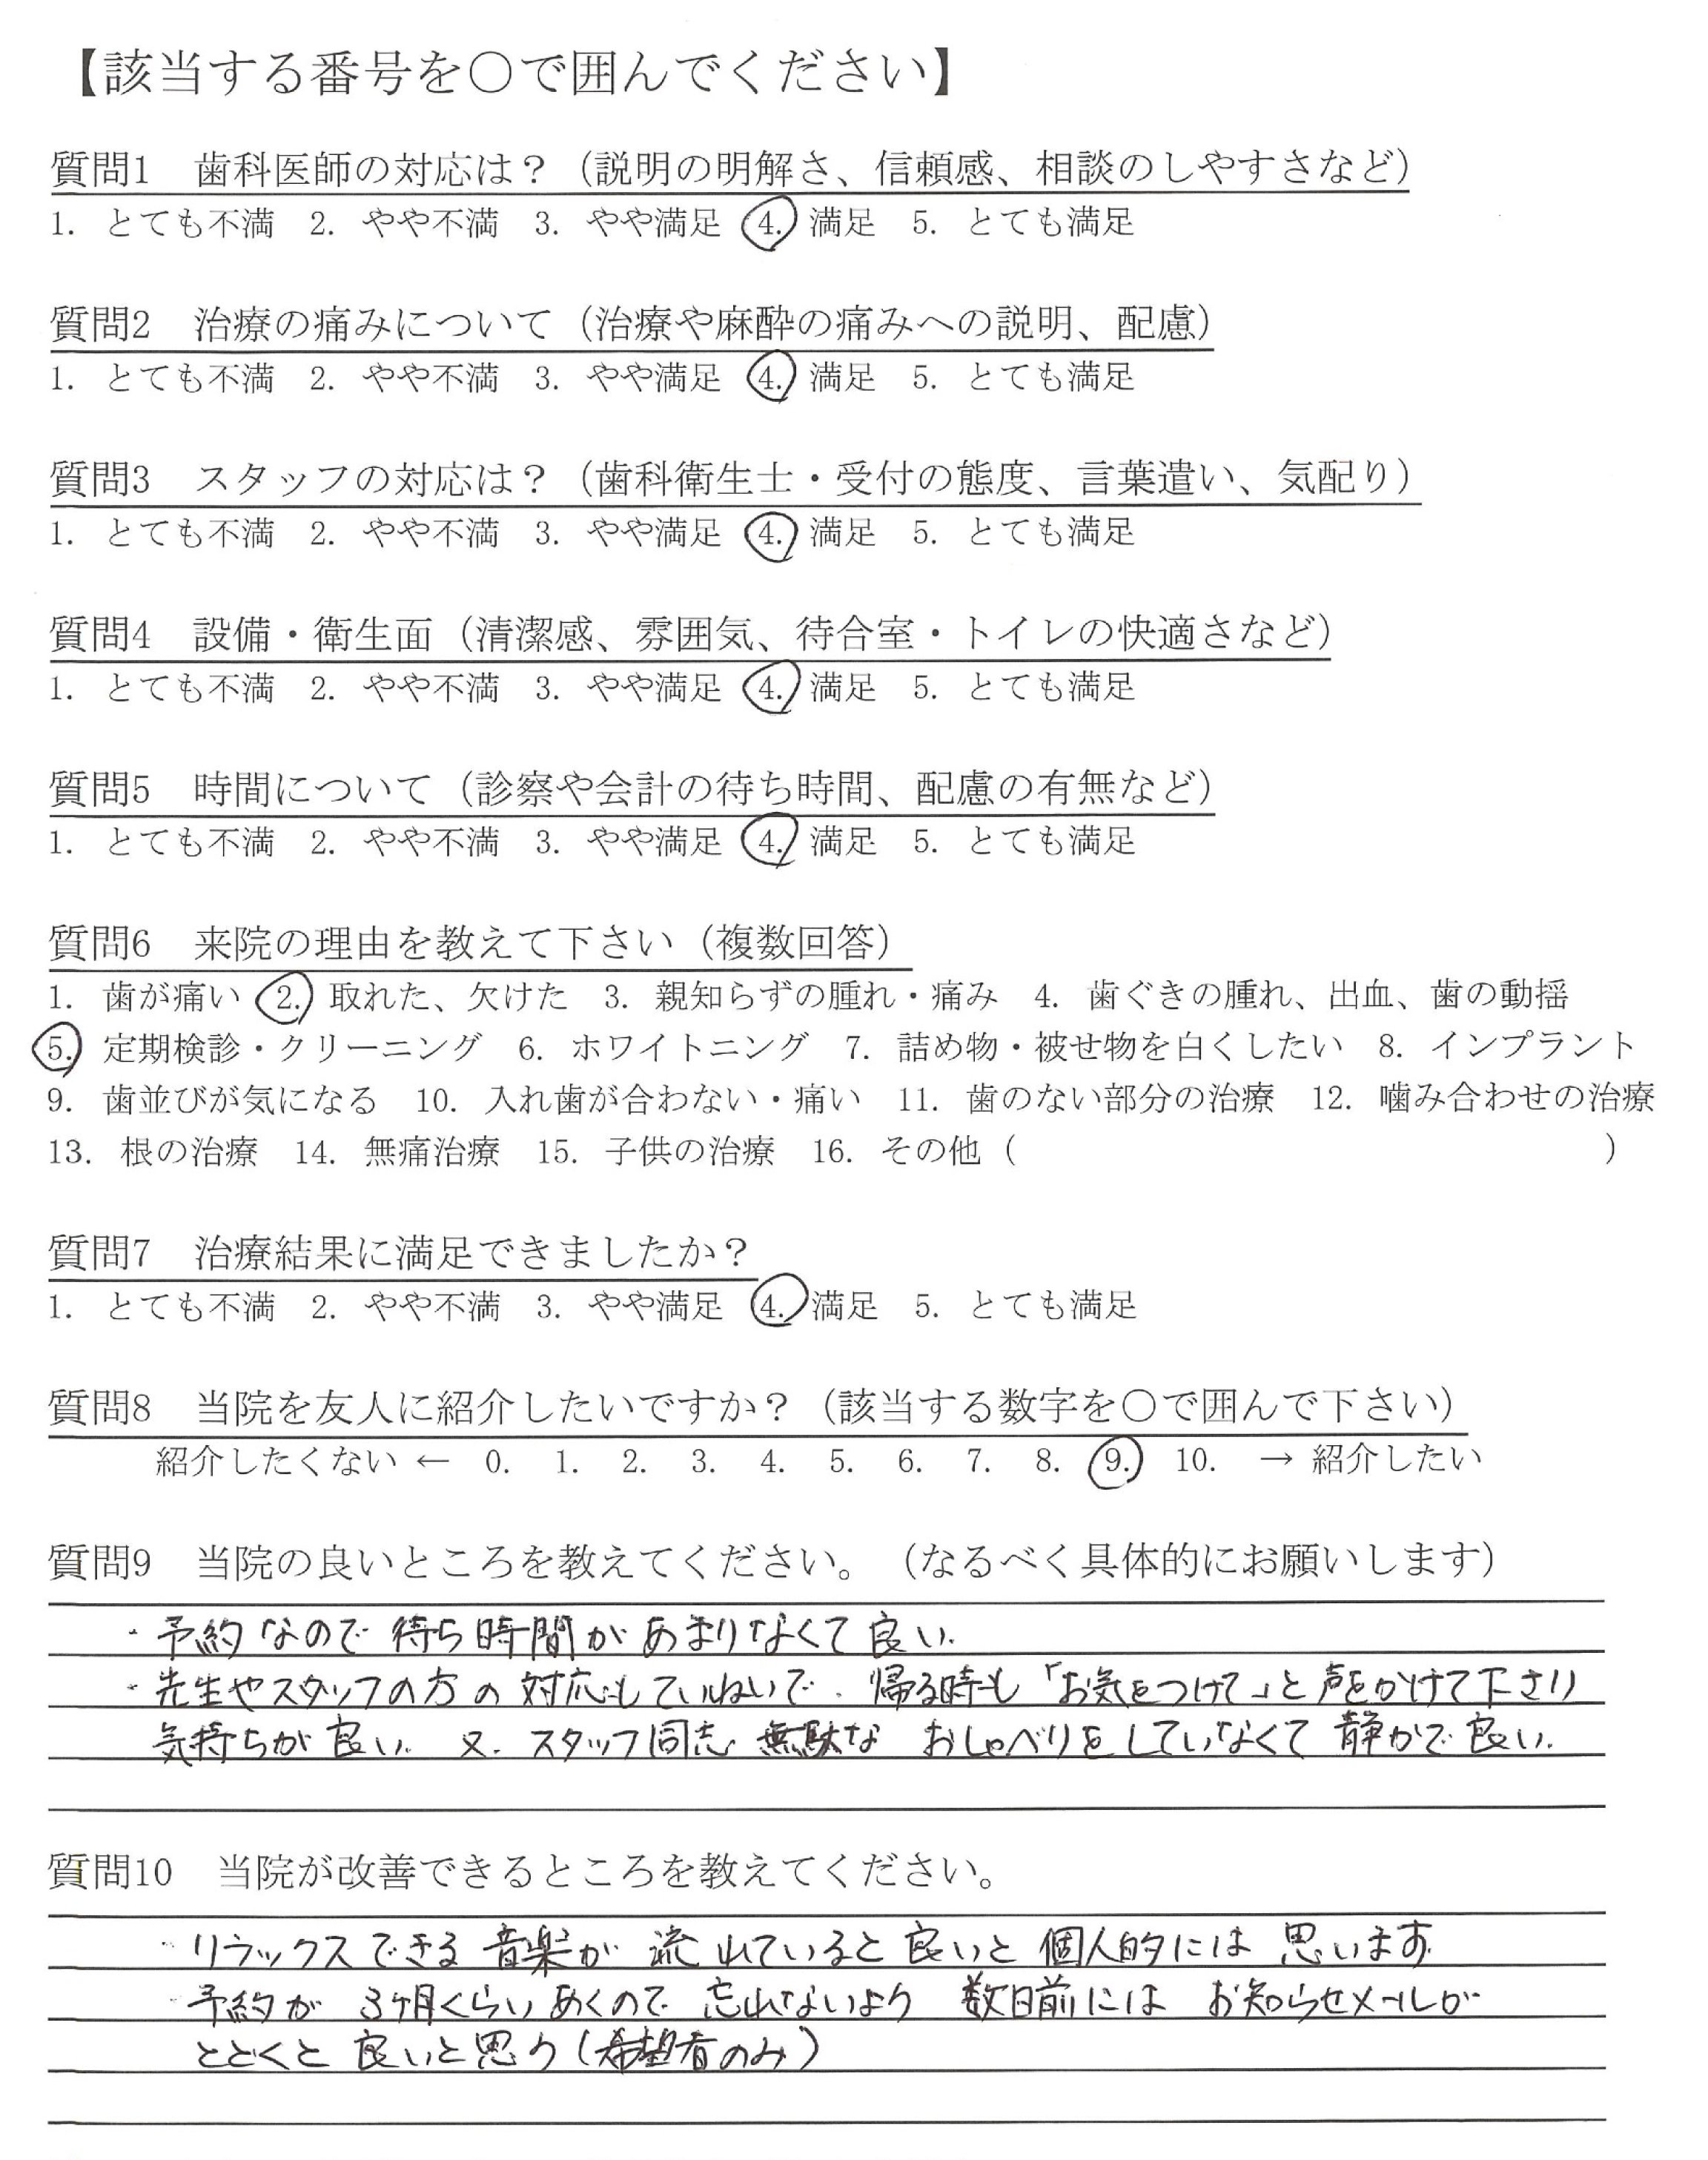 【該当する番号を○で囲んでください】
質問1 歯科医師の対応は？（説明の明解さ、信頼感、相談のしやすさなど）
1. とても不満 2. やや不満 3. やや満足 4. 満足 5. とても満足
質問2 治療の痛みについて（治療や麻酔の痛みへの説明、配慮）
1. とても不満 2. やや不満 3. やや満足 4. 満足 5. とても満足
質問3 スタッフの対応は？（歯科衛生士・受付の態度、言葉遣い、気配り）
1. とても不満 2. やや不満 3. やや満足 4. 満足 5. とても満足
質問4 設備・衛生面（清潔感、雰囲気、待合室・トイレの快適さなど）
1. とても不満 2. やや不満 3. やや満足 4. 満足 5. とても満足
質問5 時間について（診察や会計の待ち時間、配慮の有無など）
1. とても不満 2. やや不満 3. やや満足 4. 満足 5. とても満足
質問6 来院の理由を教えて下さい（複数回答）
1. 歯が痛い 2. 取れた、欠けた 3. 親知らずの腫れ・痛み 4. 歯ぐきの腫れ、出血、歯の動揺
5. 定期検診・クリーニング 6. ホワイトニング 7. 詰め物・被せ物を白くしたい 8. インプラント
9. 歯並びが気になる 10. 入れ歯が合わない・痛い 11. 歯のない部分の治療 12. 噛み合わせの治療
13. 根の治療 14. 無痛治療 15. 子供の治療 16. その他（ ）
質問7 治療結果に満足できましたか？
1. とても不満 2. やや不満 3. やや満足 4. 満足 5. とても満足
質問8 当院を友人に紹介したいですか？（該当する数字を○で囲んで下さい）
紹介したくない ← 0. 1. 2. 3. 4. 5. 6. 7. 8. 9. 10. → 紹介したい
質問9 当院の良いところを教えてください。（なるべく具体的にお願いします）
・予約なので待ち時間があまりなくて良い。
・先生やスタッフの方の対応もていねいで、帰る時も「お気をつけて」と声をかけて下さり
気持ちが良い。又、スタッフ同志無駄なおしゃべりをしていなくて静かで良い。
質問10 当院が改善できるところを教えてください。
・リラックスできる音楽が流れていると良いと個人的には思います。
・予約が3ヶ月くらいあくので忘れないよう数日前にはお知らせメールが
とどくと良いと思う（希望者のみ）